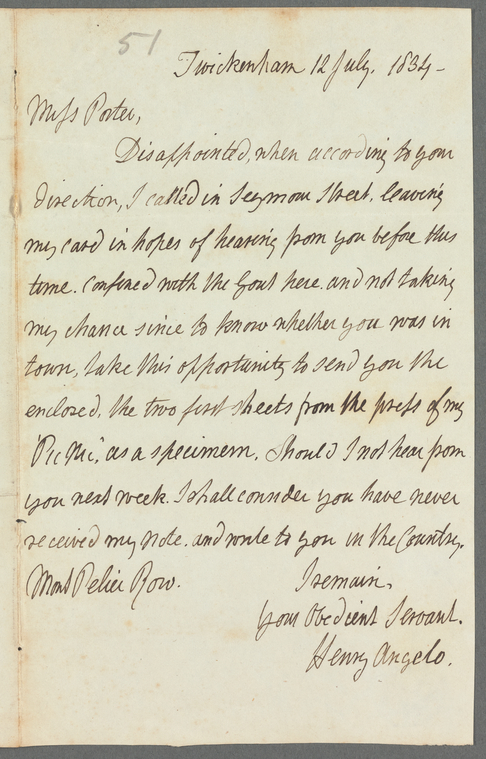 51
Twickenham 12 July. 1834-
Miss Porter,
Disappointed, when according to your
direction, I called in Seymour Street. leaving
my card in hopes of hearing from you before this
time. Confined with the Gout here. and not taking
my chance since to know whether you was in
town, take this opportunity to send you the
enclosed. the two first sheets from the press of my
"Pic Nic", as a specimen. Should I not hear from
you next week. I shall consider you have never
received my note. and write to you in the Country.
Mont Pelier Row. I remain.
your Obedient Servant.
Henry Angelo.